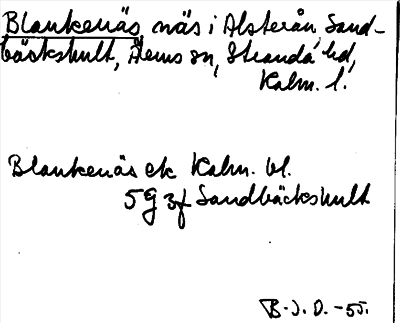 Blankenäs näs i Alsterån, Sand-
bäckshult, Åems sn, Stranda hd,
Kalm. l.
Blankenäs ek Kalm. bl.
5 g 3 f Sandbäckshult
B.J.O. -55.